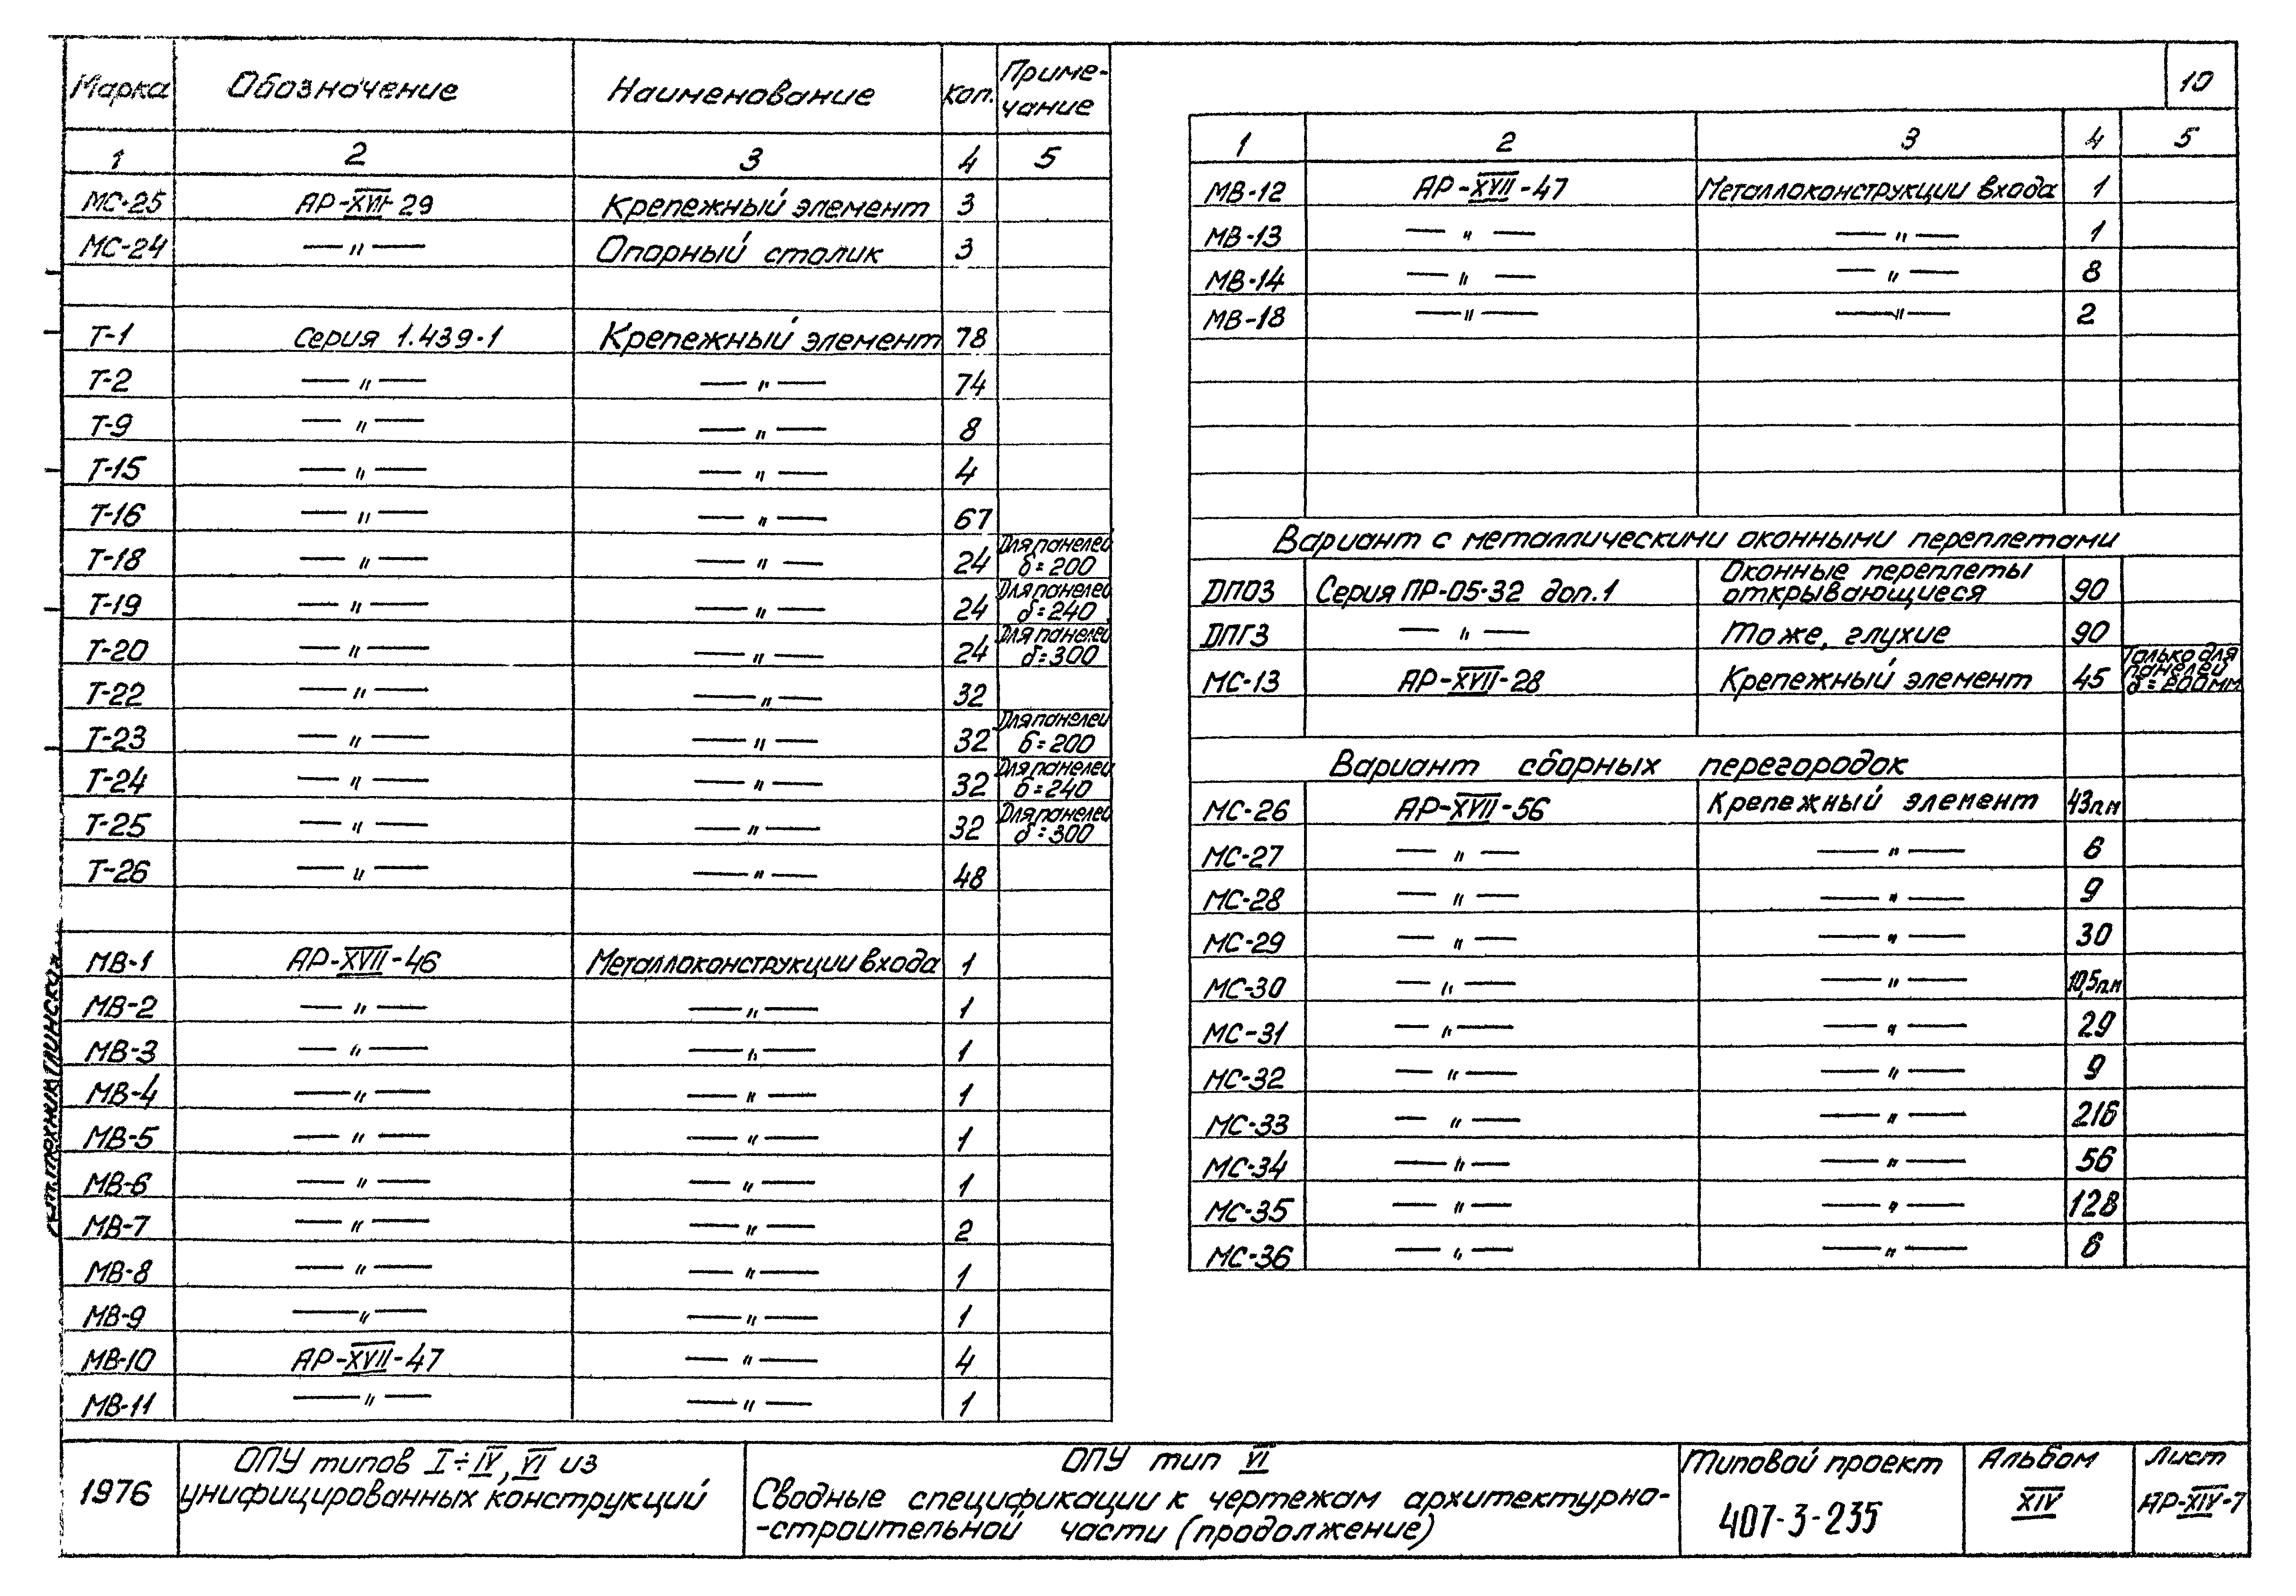 Марка Обозначение Наименование Кол. Примечание
1 2 3 4 5
МС-25 АР-XVII-29 Крепежный элемент 3
МС-24 —〃— Опорный столик 3
Т-1 Серия 1.439-1 Крепежный элемент 78
Т-2 —〃— —〃— 74
Т-9 —〃— —〃— 8
Т-15 —〃— —〃— 4
Т-16 —〃— —〃— 67
Т-18 —〃— —〃— 24 Для панелей δ=200
Т-19 —〃— —〃— 24 Для панелей δ=240
Т-20 —〃— —〃— 24 Для панелей δ=300
Т-22 —〃— —〃— 32
Т-23 —〃— —〃— 32 Для панелей δ=200
Т-24 —〃— —〃— 32 Для панелей δ=240
Т-25 —〃— —〃— 32 Для панелей δ=300
Т-26 —〃— —〃— 48
МВ-1 АР-XVII-46 Металлоконструкции входа 1
МВ-2 —〃— —〃— 1
МВ-3 —〃— —〃— 1
МВ-4 —〃— —〃— 1
МВ-5 —〃— —〃— 1
МВ-6 —〃— —〃— 1
МВ-7 —〃— —〃— 2
МВ-8 —〃— —〃— 1
МВ-9 —〃— —〃— 1
МВ-10 АР-XVII-47 —〃— 4
МВ-11 —〃— —〃— 1
10
1 2 3 4 5
МВ-12 АР-XVII-47 Металлоконструкции входа 1
МВ-13 —〃— —〃— 1
МВ-14 —〃— —〃— 8
МВ-18 —〃— —〃— 2
Вариант с металлическими оконными переплетами
ДПО3 Серия ПР-05-32 доп.1 Оконные переплеты открывающиеся 90
ДПГ3 —〃— То же, глухие 90
МС-13 АР-XVII-28 Крепежный элемент 45 Только для панелей δ=200мм
Вариант сборных перегородок
МС-26 АР-XVII-56 Крепежный элемент 43п.м
МС-27 —〃— —〃— 6
МС-28 —〃— —〃— 9
МС-29 —〃— —〃— 30
МС-30 —〃— —〃— 10,5п.м
МС-31 —〃— —〃— 29
МС-32 —〃— —〃— 9
МС-33 —〃— —〃— 216
МС-34 —〃— —〃— 56
МС-35 —〃— —〃— 128
МС-36 —〃— —〃— 6
1976
ОПУ типов I÷IV, VI из
унифицированных конструкций
ОПУ тип VI
Сводные спецификации к чертежам архитектурно-
-строительной части (продолжение)
Типовой проект
407-3-235
Альбом
XIV
Лист
АР-XIV-7